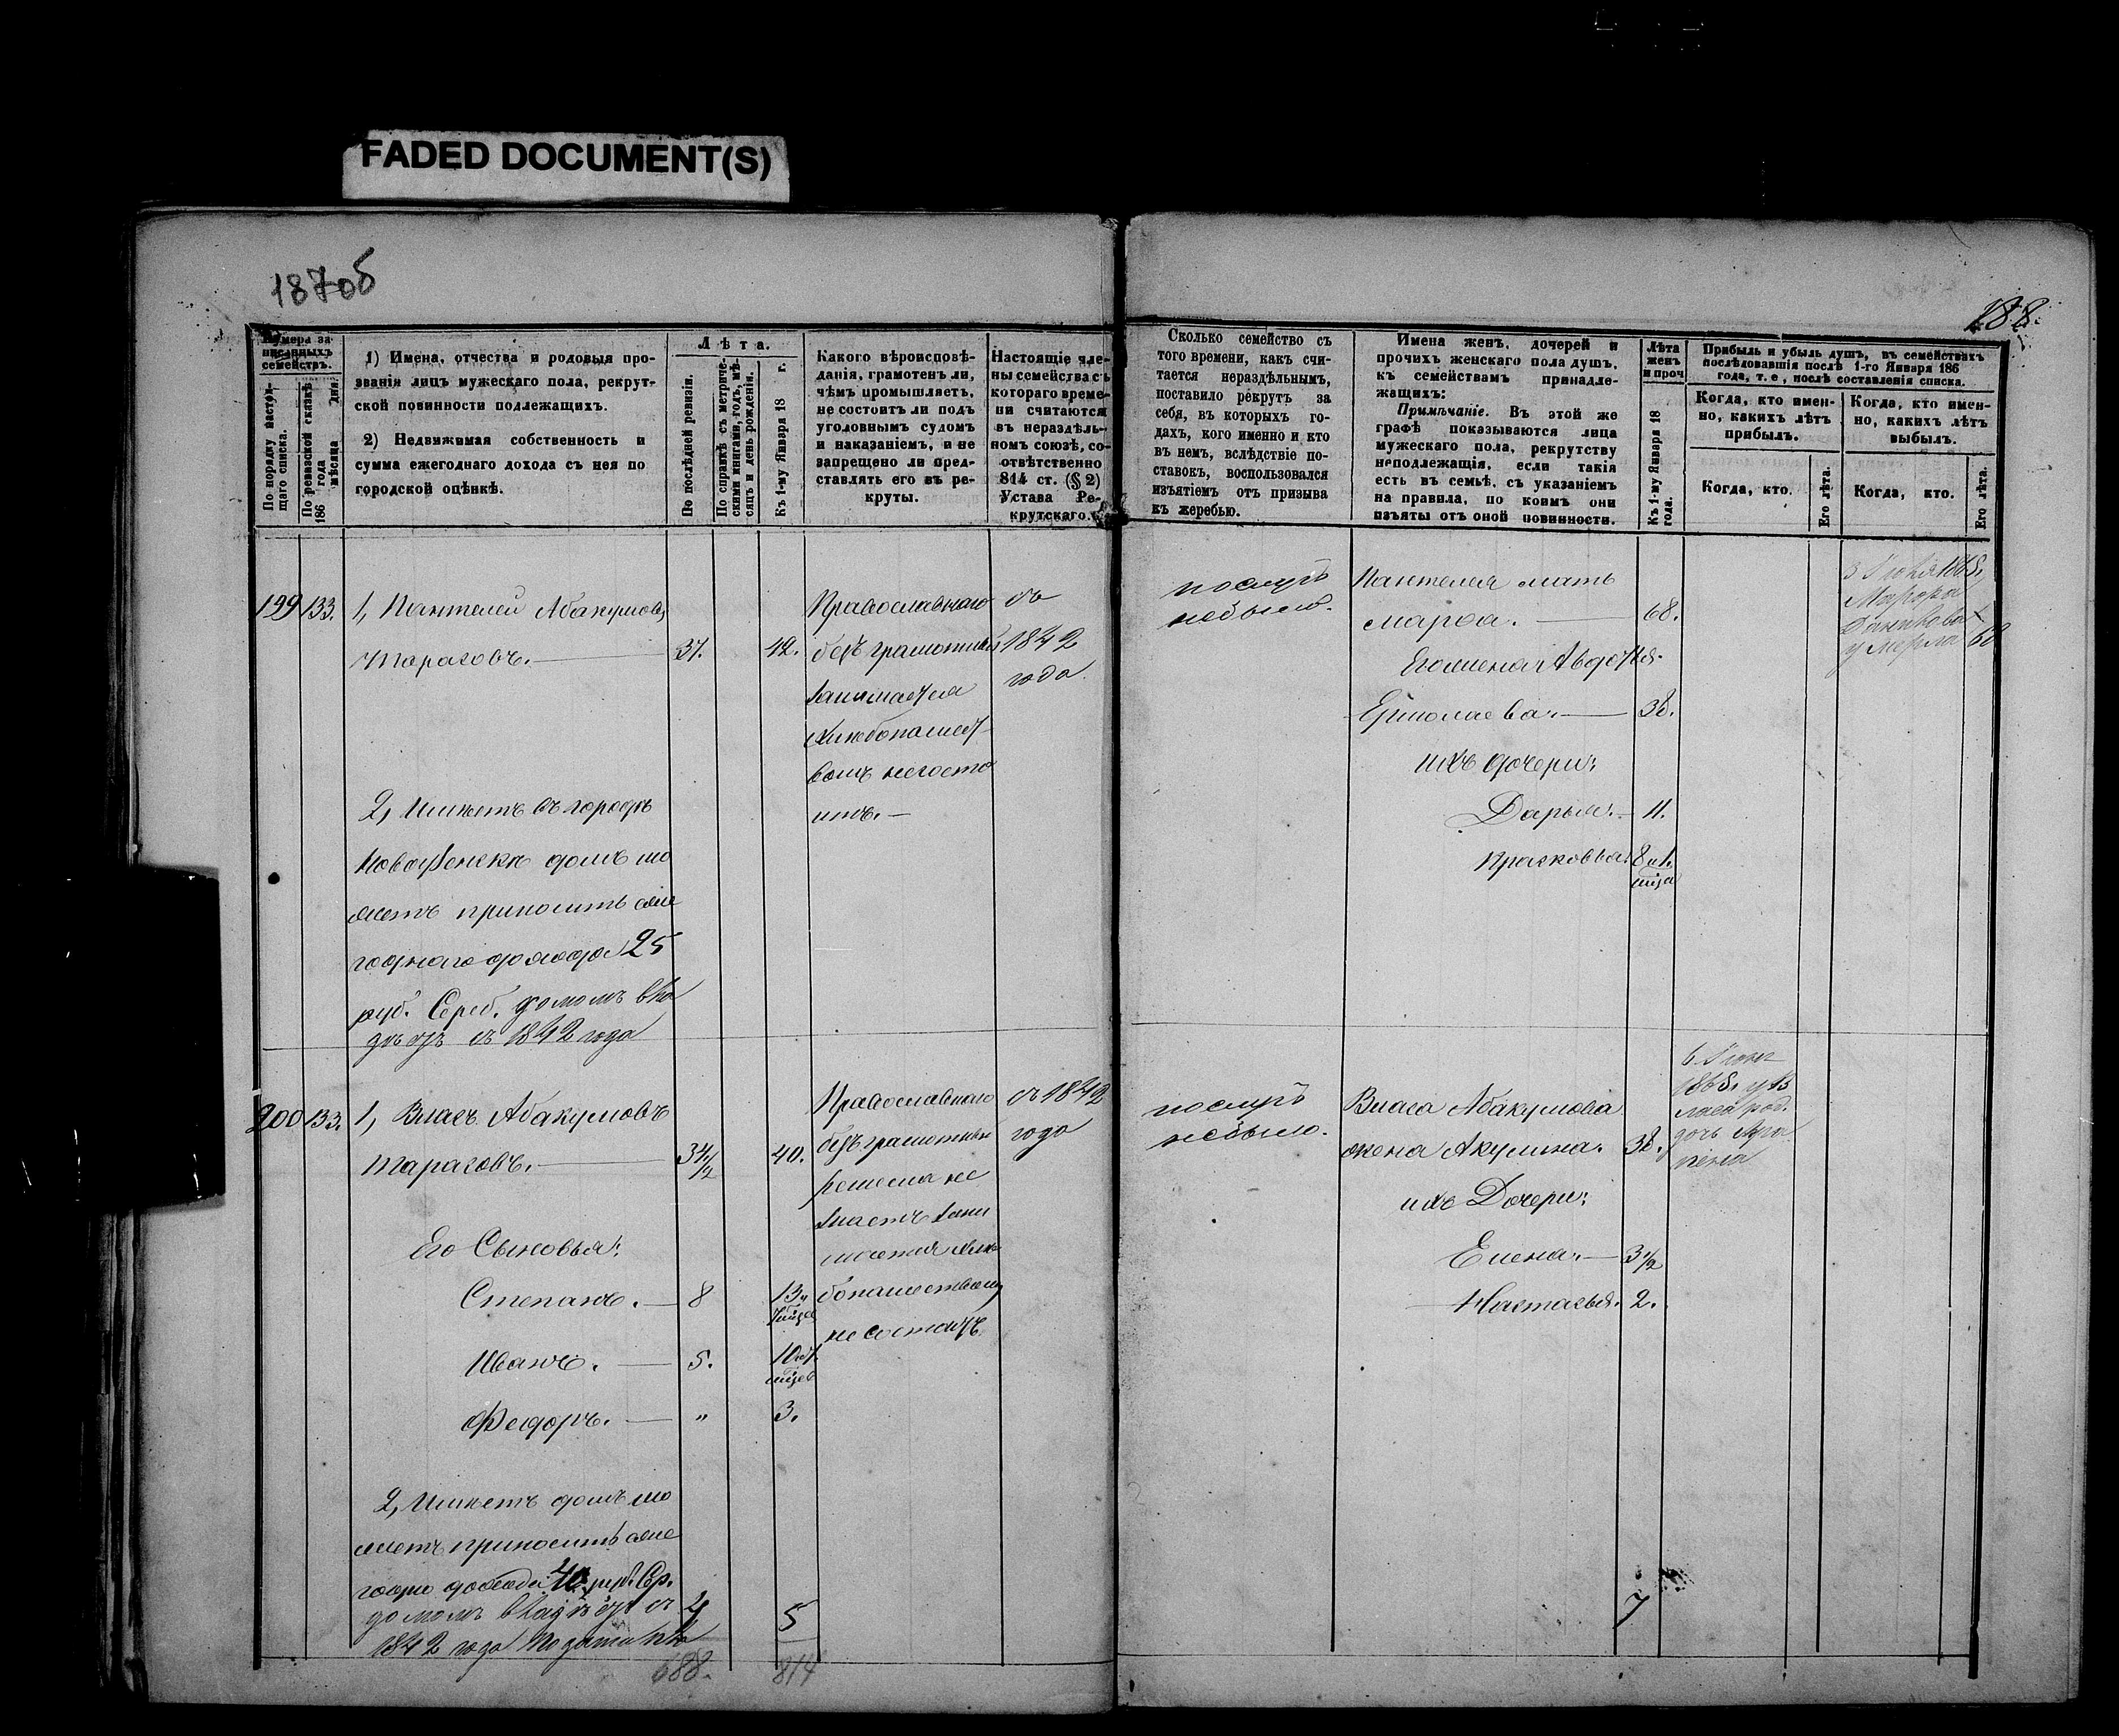 FADED DOCUMENT(S)
187об
188.
Номера записанныхъ семействъ.
По порядку настоящаго списка.
По ревизской сказкѣ 186 года мѣсяца дня.
1) Имена, отчества и родовыя прозванія лицъ мужескаго пола, рекрутской повинности подлежащихъ.
2) Недвижимая собственность и сумма ежегоднаго дохода съ нея по городской оцѣнкѣ.
Лѣта.
По послѣдней ревизіи.
По справкѣ съ метрическими книгами, годъ, мѣсяцъ и день рожденія.
Къ 1-му Января 18 г.
Какого вѣроисповѣданія, грамотенъ ли, чѣмъ промышляетъ, не состоитъ ли подъ уголовнымъ судомъ и наказаніемъ, и не запрещено ли представлять его въ рекруты.
Настоящіе члены семейства съ котораго времени считаются въ нераздѣльномъ союзѣ, соотвѣтственно 814 ст. (§ 2) Устава Рекрутскаго.
Сколько семейство съ того времени, какъ считается нераздѣльнымъ, поставило рекрутъ за себя, въ которыхъ годахъ, кого именно и кто въ немъ, вслѣдствіе поставокъ, воспользовался изъятіемъ отъ призыва къ жеребью.
Имена женъ, дочерей и прочихъ женскаго пола душъ, къ семействамъ принадлежащихъ:
Примѣчаніе. Въ этой же графѣ показываются лица мужескаго пола, рекрутству неподлежащія, если такія есть въ семьѣ, съ указаніемъ на правила, по коимъ они изъяты отъ оной повинности.
Лѣта женъ и проч
Къ 1-му Января 18 года.
Прибыль и убыль душъ, въ семействахъ послѣдовавшія послѣ 1-го Января 186 года, т. е., послѣ составленія списка.
Когда, кто именно, какихъ лѣтъ прибылъ.
Когда, кто именно, какихъ лѣтъ выбылъ.
Когда, кто.
Его лѣта.
Когда, кто.
Его лѣта.
199 133. 1, Пантелей Абакумовъ
Тарасовъ. 37. 42.
Православнаго
безграмотный
занимается
хлѣбопашест-
вомъ несосто
итъ.
съ
1842
года
2, Имѣетъ въ городѣ
Новоузенскѣ домъ мо
жетъ приносить еже
годнаго дохода 25
руб. Сереб. домомъ вла
дѣетъ съ 1842 года
послугъ
небыло.
Пантелея мать
Марфа. 68.
Его жена Авдотья
Ермолаева. 38.
ихъ дочери:
Дарья. 11.
Прасковья. 8 и 1.
мѣсяца
умерла 68
200 133. 1, Власъ Абакумовъ
Тарасовъ. 34 1/2 40.
Его Сыновья:
Степанъ. 8 13
Иванъ. 5. 10
Федоръ. " 3.
Православнаго
безграмотный
ремесла не
знаетъ зани
мается хлѣ
бопашествомъ
не состоитъ
съ 1842
года
2, Имѣетъ домъ мо
жетъ приносить еже
годно дохода 40 руб. Ср.
домомъ владѣетъ съ
1842 года
4
5
688.
814
послугъ
небыло.
Власа Абакумова
жена Акулина. 38.
ихъ Дочери:
Елена. 3 1/2
Настасья. 2.
1865. у В
ласа род.
дочь Агра
пена
7